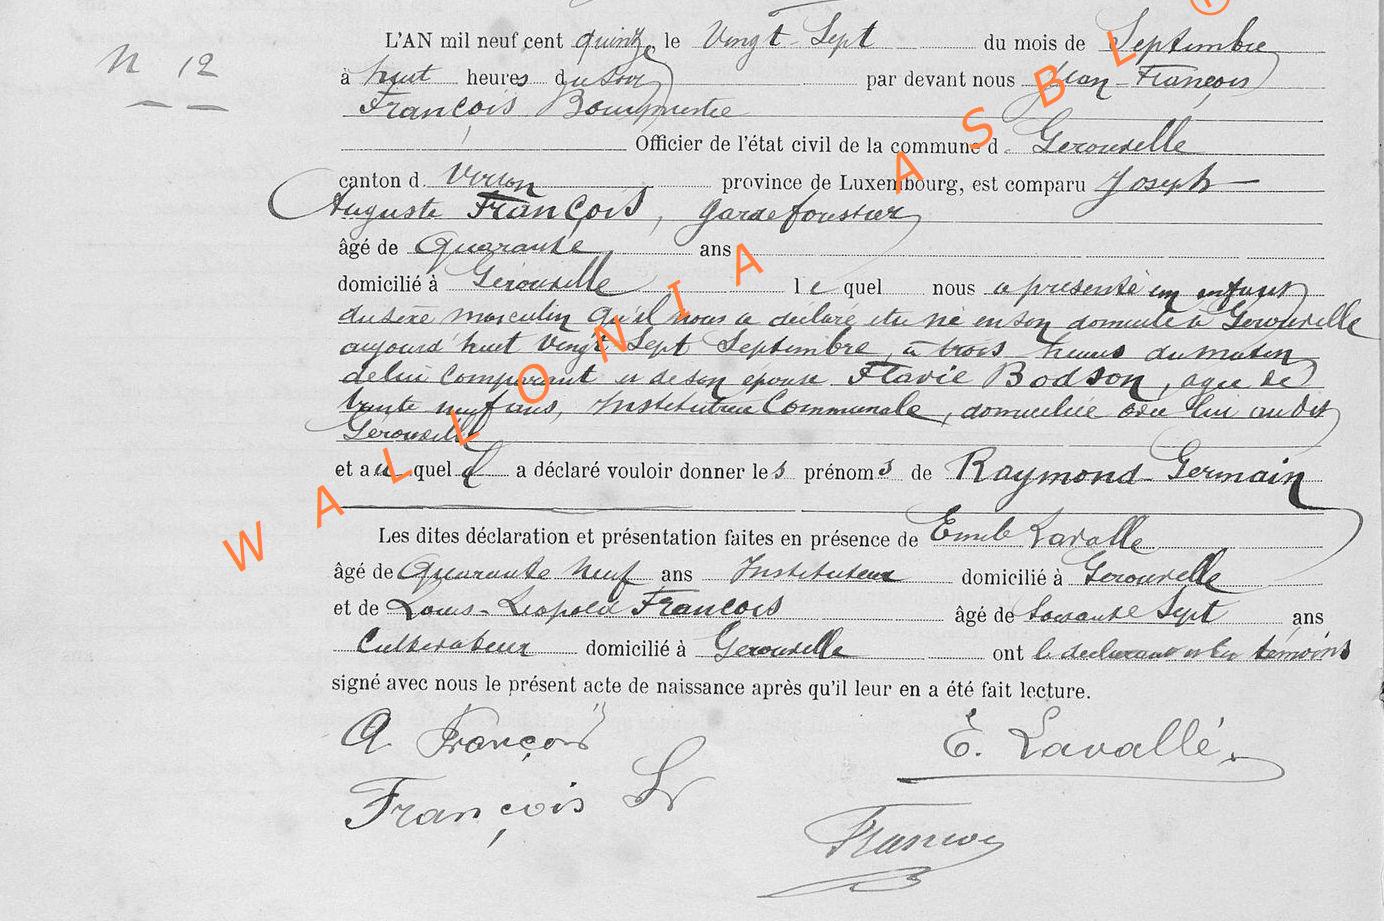 N 12
L'AN mil neuf cent quinze, le Vingt-Sept du mois de Septembre
à huit heures du soir par devant nous Jean-François
François Bourgmestre
Officier de l'état civil de la commune d Gerouville
canton d Virton province de Luxembourg, est comparu Joseph
Auguste François, gardeforestier
âgé de Quarante ans
domicilié à Gérouville le quel nous a présenté un enfant
du sexe masculin qu'il nous a déclaré être né en son domicile à Gerouville
aujourd'huit vingt sept Septembre, à trois heures du matin
de lui comparant et de son épouse Flavie Bodson, agée de
trente neuf ans, Institutrice Communale, domiciliée avec lui audit
Gérouville
et au quel il a déclaré vouloir donner les prénoms de Raymond Germain
Les dites déclaration et présentation faites en présence de Emile Lavalle
âgé de Quarante Neuf ans Instituteur domicilié à Gerouville
et de Louis-Leopold François âgé de Soixante Sept ans
Cultivateur domicilié à Gerouville ont le déclarant et les témoins
signé avec nous le présent acte de naissance après qu'il leur en a été fait lecture.
A. François
E. Lavallé.
François L
François
WALLONIA ASBL ®